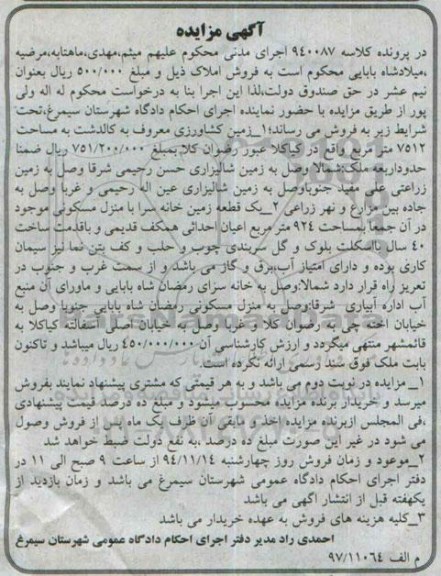 آگهی مزایده
در پرونده کلاسه ۹۴۰۰۸۷ اجرای مدنی محکوم علیهم میثم،مهدی،ماهتابه،مرضیه
،میلادشاه بابایی محکوم است به فروش املاک ذیل و مبلغ ۵۰۰/۰۰۰ ریال بعنوان
نیم عشر در حق صندوق دولت،لذا این اجرا بنا به درخواست محکوم له اله ولی
پور از طریق مزایده با حضور نماینده اجرای احکام دادگاه شهرستان سیمرغ،تحت
شرایط زیر به فروش می رساند؛۱_زمین کشاورزی معروف به کالدشت به مساحت
۷۵۱۲ متر مربع واقع در کیاکلا عبور رضوان کلا بمبلغ ۷۵۱/۲۰۰/۰۰۰ ریال ضمنا
حدوداربعه ملک:شمالا وصل به زمین شالیزاری حسن رحیمی شرقا وصل به زمین
زراعتی علی مفید جنوباوصل به زمین شالیزاری عین اله رحیمی و غربا وصل به
جاده بین مزارع و نهر زراعی ۲_یک قطعه زمین خانه سرا با منزل مسکونی موجود
در آن جمعا بمساحت ۹۲۴ متر مربع اعیان احداثی همکف قدیمی و باقدمت ساخت
۴۰ سال بااسکلت بلوک و گل سربندی چوب و حلب و کف بتن نما نیز سیمان
کاری بوده و دارای امتیاز آب،برق و گاز می باشد و از سمت غرب و جنوب در
تعریز راه قرار دارد شمالا:وصل به خانه سرای رمضان شاه بابایی و ماورای آن منبع
آب اداره آبیاری شرقا:وصل به منزل مسکونی رمضان شاه بابایی جنوبا وصل به
خیابان اخته چی به رضوان کلا و غربا وصل به خیابان اصلی آسفالته کیاکلا به
قائمشهر منتهی میگردد و ارزش کارشناسی آن ۴۵۰/۰۰۰/۰۰۰ ریال میباشد و تاکنون
بابت ملک فوق سند رسمی ارائه نکرده است.
۱_ مزایده در نوبت دوم می باشد و به هر قیمتی که مشتری پیشنهاد نمایند بفروش
میرسد و خریدار برنده مزایده محسوب میشود و مبلغ ده درصد قیمت پیشنهادی
،فی المجلس ازبرنده مزایده اخذ و مابقی آن ظرف یک ماه پس از فروش وصول
می شود در غیر این صورت مبلغ ده درصد ،به نفع دولت ضبط خواهد شد
۲_موعود و زمان فروش روز چهارشنبه ۹۴/۱۱/۱۴ از ساعت ۹ صبح الی ۱۱ در
دفتر اجرای احکام دادگاه عمومی شهرستان سیمرغ می باشد و زمان بازدید از
یکهفته قبل از انتشار آگهی می باشد
۳_کلیه هزینه های فروش به عهده خریدار می باشد
احمدی راد مدیر دفتر اجرای احکام دادگاه عمومی شهرستان سیمرغ
م الف ۹۷/۱۱۰۶۴